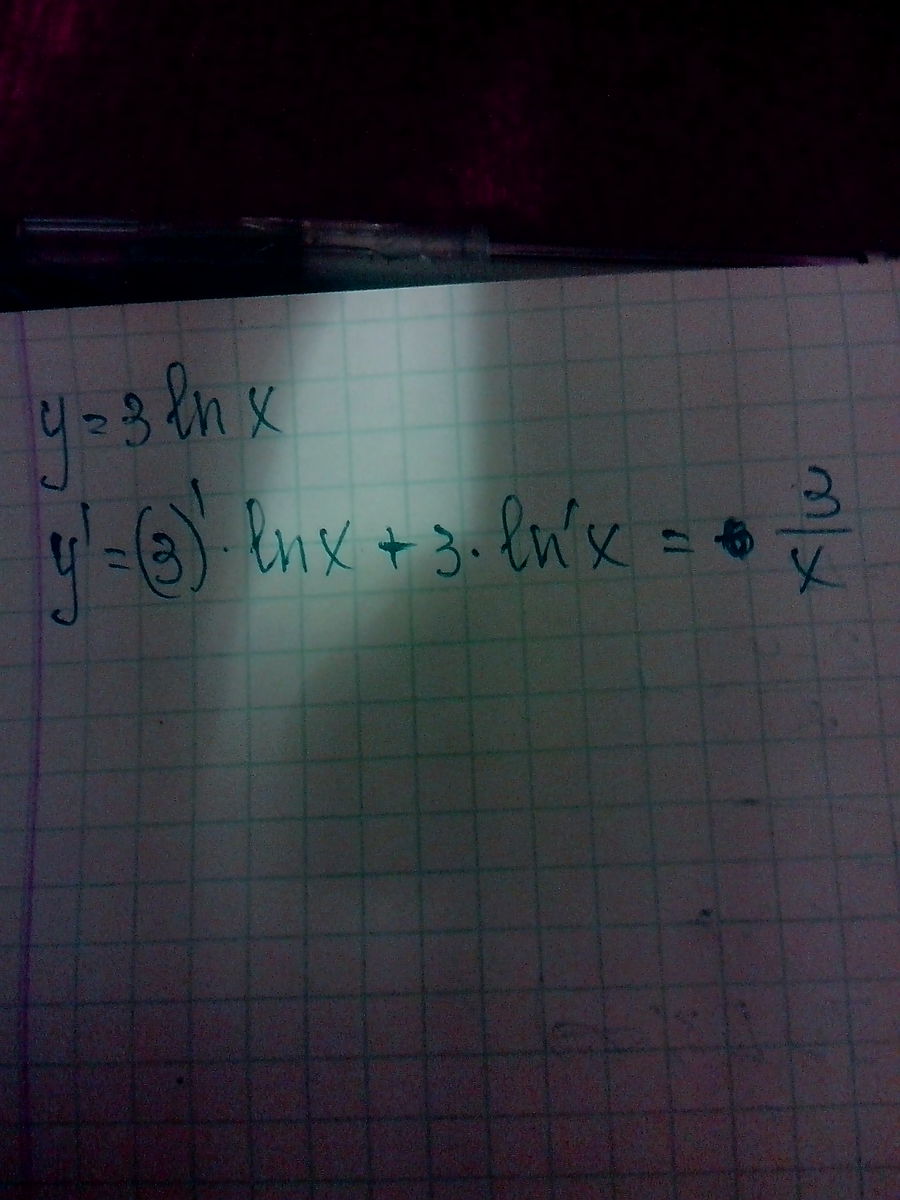 y = 3 ln x
y' = (3)' · ln x + 3 · ln' x = 3/x